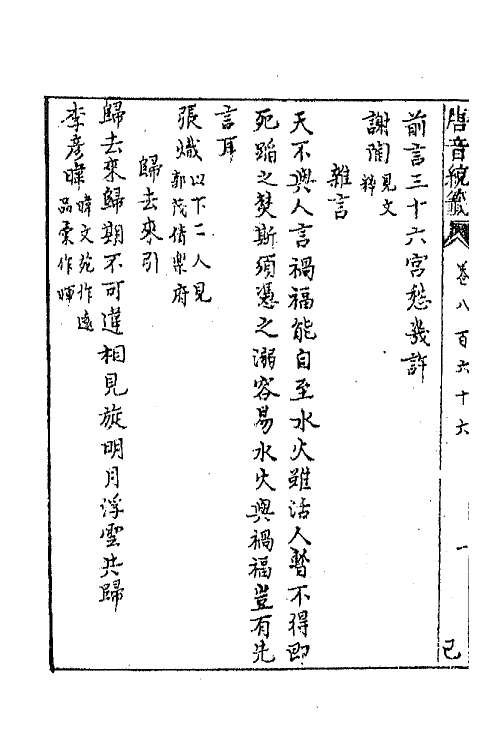 唐音統籤 卷八百六十六 一 已
前言三十六宮愁幾許
謝陶見文粹
雜言
天不與人言禍福能自至水火雖活人暫不得即
死蹈之焚斯須憑之溺容易水火與禍福豈有先
言耳
張熾以下二人見郭茂倩樂府
歸去來引
歸去來歸期不可違相見旋明月浮雲共歸
李彥暐暐文苑作遠品彙作暉